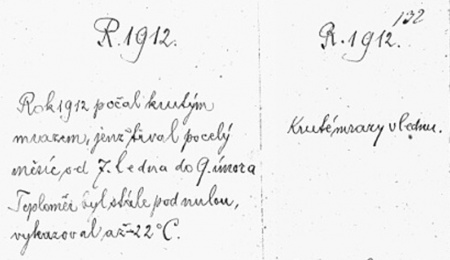 R. 1912.
Rok 1912 počal krutým
mrazem, jenž trval po celý
měsíc od 7. ledna do 9. února
Teploměr byl stále pod nulou,
vykazoval až -22°C.
132
R. 1912.
Kruté mrazy v lednu.